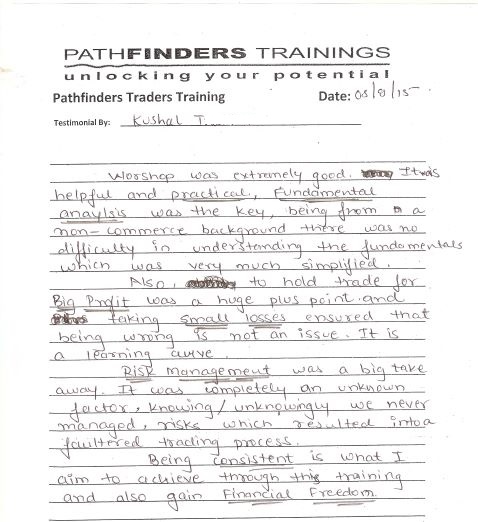 PATHFINDERS TRAININGS
unlocking your potential
Pathfinders Traders Training Date: 03/8/15
Testimonial By: Kushal T.
Worshop was extremely good. It was
helpful and practical, Fundamental
anaylsis was the key, being from a
non-commerce background there was no
difficulty in understanding the fundamentals
which was very much simplified.
Also, to hold trade for
Big Profit was a huge plus point and
taking small losses ensured that
being wrong is not an issue. It is
a learning curve.
Risk Management was a big take
away. It was completely an unknown
factor, knowing/unknowingly we never
managed, risks which resulted into a
faultered trading process.
Being consistent is what I
aim to achieve through this training
and also gain Financial Freedom.